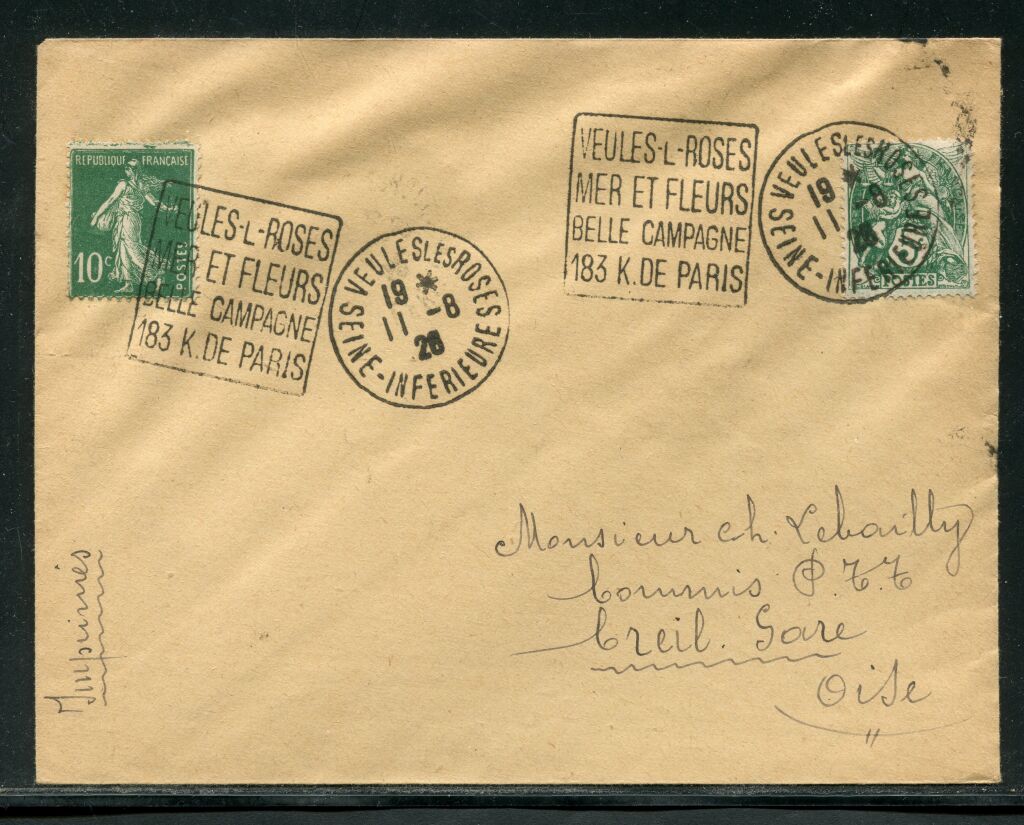 REPUBLIQUE FRANÇAISE
10c
POSTES
VEULES-L-ROSES
MER ET FLEURS
BELLE CAMPAGNE
183 K. DE PARIS
VEULES LES ROSES
19 *
11 -8
26
SEINE-INFERIEURE
VEULES-L-ROSES
MER ET FLEURS
BELLE CAMPAGNE
183 K. DE PARIS
VEULES LES ROSES
19 *
11 -8
26
SEINE-INFERIEURE
5
POSTES
Monsieur Ch. Lebailly
Commis P.T.T
Creil. Gare
Oise
Imprimés